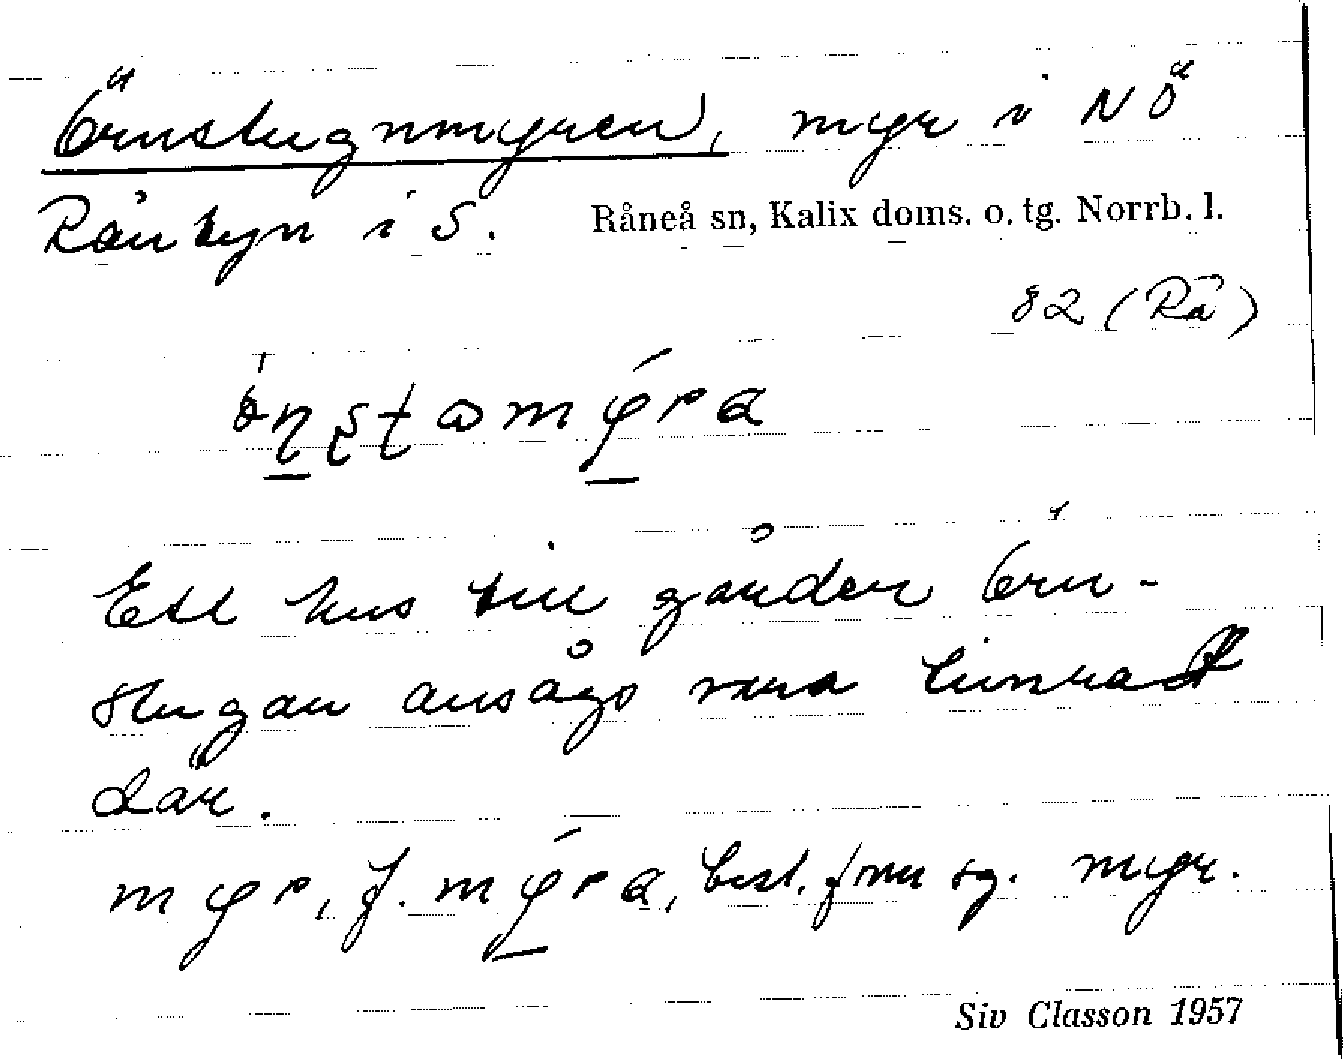 Örnstugnmyren, myr i NÖ
Rånbyn i S. Råneå sn, Kalix doms. o. tg. Norrb. l.
82 (Rå)
Ett hus till gården Örn-
stugan ansågs vara timrat
där.
f. best. form sg. myr.
Siv Classon 1957